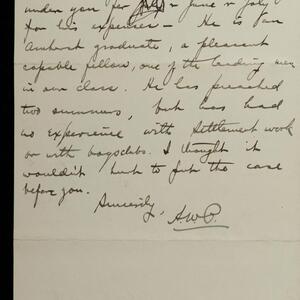 under you for July - June & July
for his expenses - He is an
Amherst graduate, a pleasant
capable fellow, one of the leading men
in our class. He has preached
two summers, but has had
no experience with settlement work
or with boysclubs. I thought it
wouldn't hurt to put the case
before you.
Sincerely,
A.W.P.